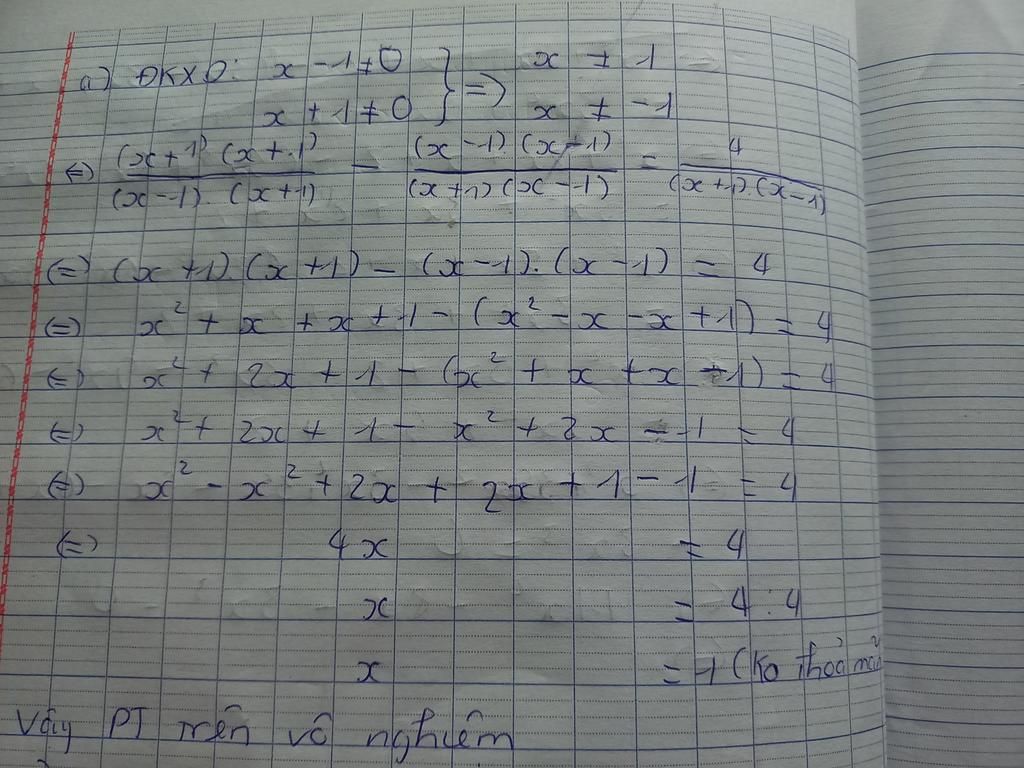 a) ĐKXĐ: x - 1 ≠ 0 } => x ≠ 1
x + 1 ≠ 0 x ≠ -1
(=) (x+1) (x+1) / (x-1). (x+1) - (x-1) (x-1) / (x+1) (x-1) = 4 / (x+1).(x-1)
(=) (x+1). (x+1) - (x-1). (x-1) = 4
(=) x² + x + x + 1 - (x² - x - x + 1) = 4
(=) x² + 2x + 1 - (x² + x + x - 1) = 4
(=) x² + 2x + 1 - x² + 2x - 1 = 4
(=) x² - x² + 2x + 2x + 1 - 1 = 4
(=) 4x = 4
x = 4 : 4
x = 1 (Ko thoả mãn
Vậy PT trên vô nghiệm